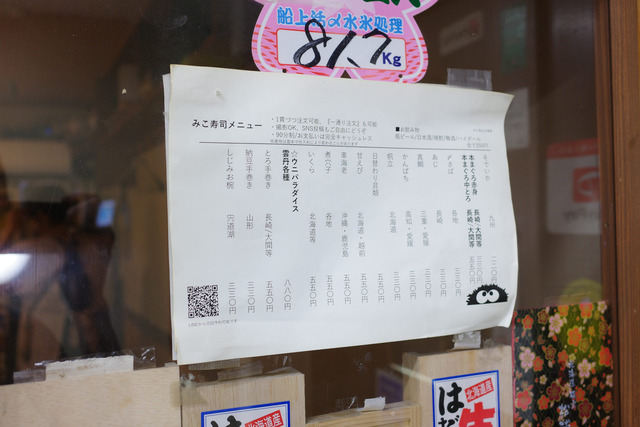 船上活〆水氷処理
81.7Kg
みこ寿司メニュー
・1貫づつ注文可能、『一通り注文』も可能
・撮影OK、SNS投稿もご自由にどうぞ
・90分制/お支払いは完全キャッシュレス
■お飲み物
瓶ビール/日本酒/焼酎/梅酒/ハイボール
九州
本まぐろ赤身 長崎/大間等
本まぐろ中とろ 長崎/大間等 五五〇円
〆さば 各地 三三〇円
あじ 長崎 三三〇円
真鯛 三重・愛媛 三三〇円
かんぱち 高知・愛媛 三三〇円
帆立 北海道 三三〇円
日替わり貝類 五五〇円
甘えび 北海道・越前 五五〇円
車海老 沖縄・鹿児島 五五〇円
煮穴子 各地 五五〇円
いくら 北海道等 五五〇円
☆ウニパラダイス
雲丹各種 八八〇円
とろ手巻き 長崎/大間等 五五〇円
納豆手巻き 山形 三三〇円
しじみお椀 宍道湖 三三〇円
北海道産
は
北海道産